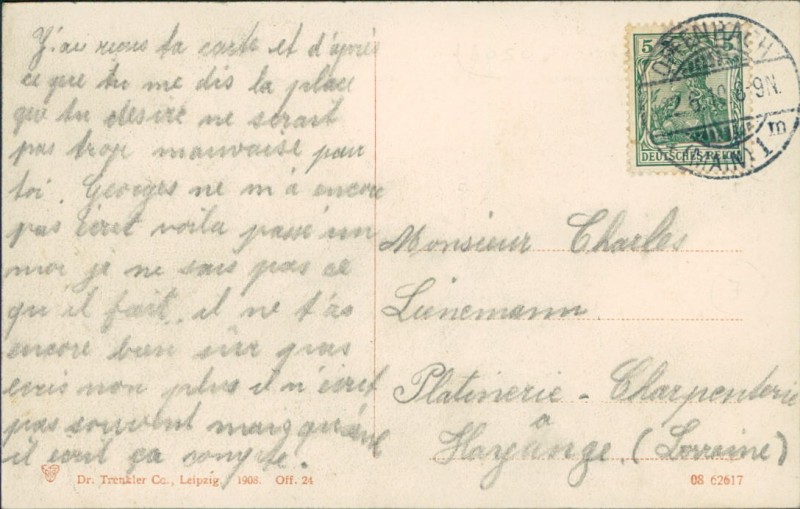 J'ai reçus ta carte et d'après
ce que tu me dis la place
que tu desire ne serait
pas trop mauvaise pour
toi. Georges ne m'a encore
pas écret voila passé un
moi je ne sais pas ce
qu'il fait, il ne t'as
encore bien sûr pas
ecris non plus il n'écret
pas souvent mais quand
il écrit ça compte.
5 5
DEUTSCHES REICH
OFFENBACH
(MAIN) 1
6-9N.
m
Monsieur Charles
Lienemann
Platinerie - Charpenterie
à
Hayange, (Lorraine)
Dr. Trenkler Co., Leipzig. 1908. Off. 24
08 62617